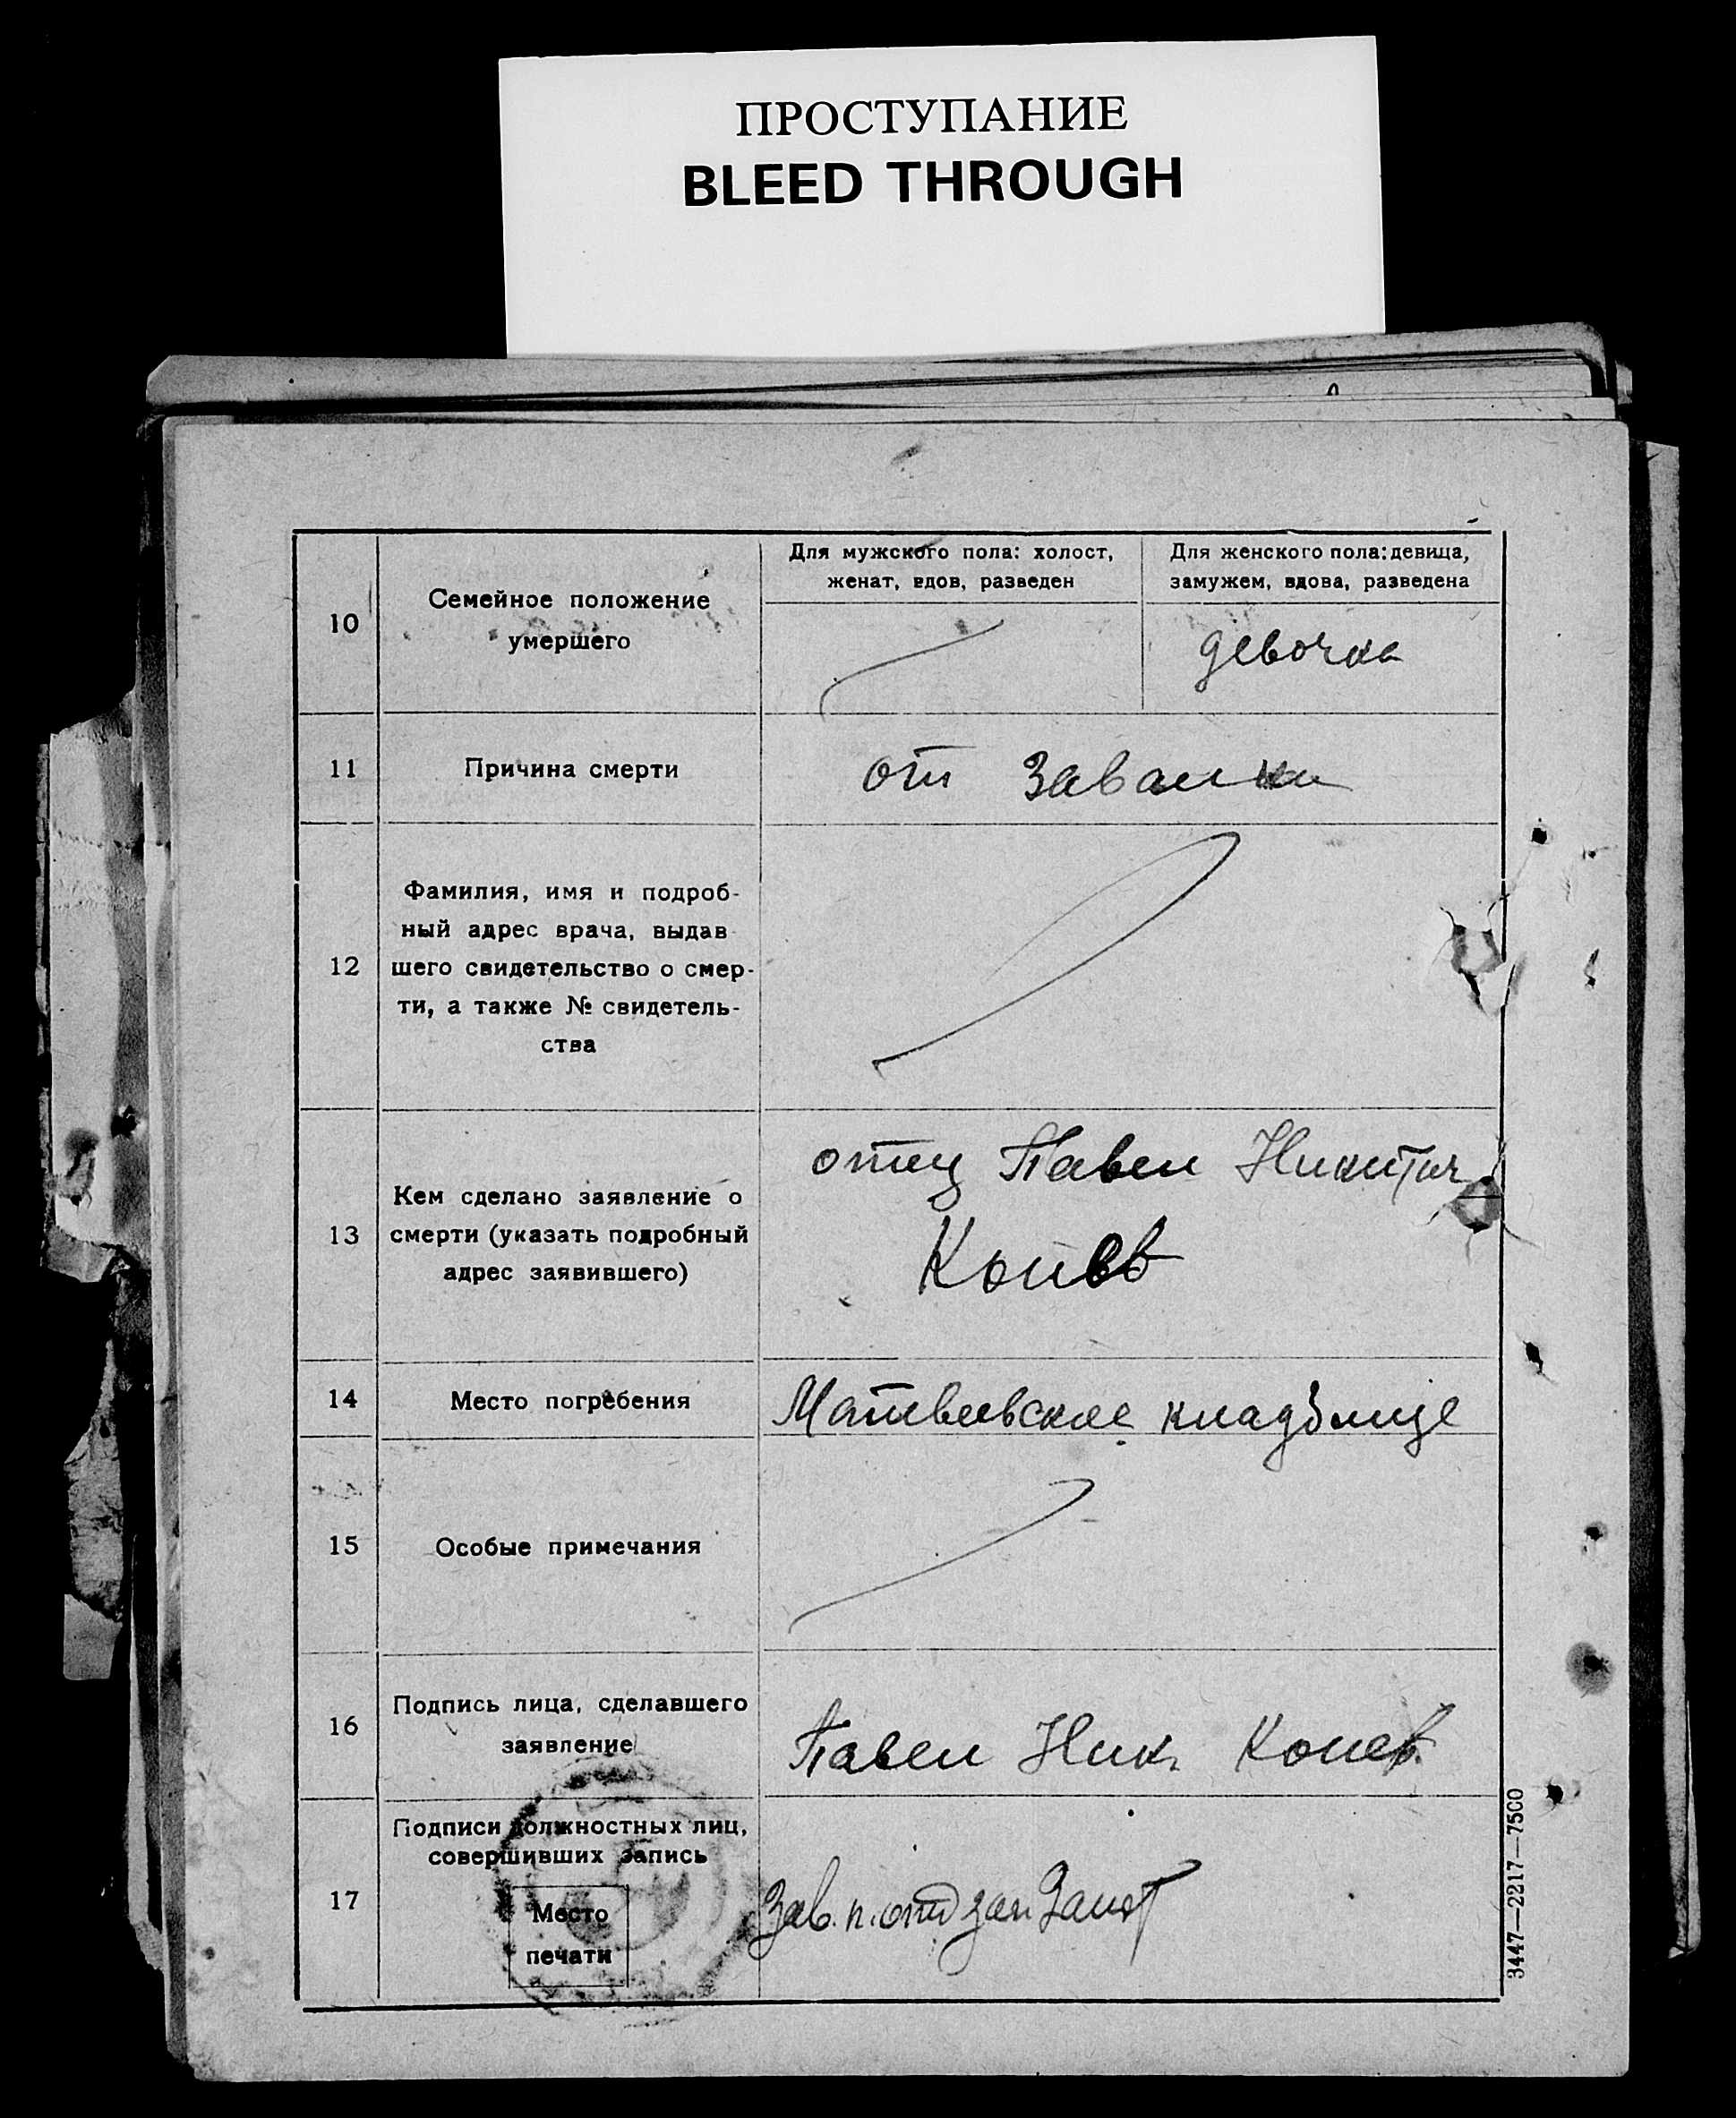 ПРОСТУПАНИЕ
BLEED THROUGH
10
Семейное положение
умершего
Для мужского пола: холост,
женат, вдов, разведен
Для женского пола: девица,
замужем, вдова, разведена
девочка
11
Причина смерти
от
12
Фамилия, имя и подроб-
ный адрес врача, выдав
шего свидетельство о смер-
ти, а также № свидетель-
ства
13
Кем сделано заявление о
смерти (указать подробный
адрес заявившего)
отец Павел Никитич
Конев
14
Место погребения
Матвеевское кладбище
15
Особые примечания
16
Подпись лица, сделавшего
заявление
Павел Ник. Конев
17
Подписи должностных лиц,
совершивших запись
Место
печати
Зав.
3447—2217—7500